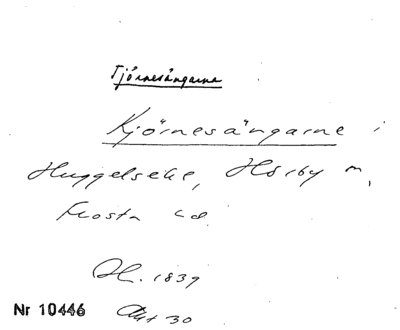 Tjörnesängarna
Kjörnesängarne i
Huggelseke, Hörby m,
Frosta hd.
H. 1839
Nr 10446 Akt 30